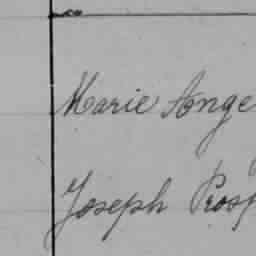 Marie Ange
Joseph Prosp